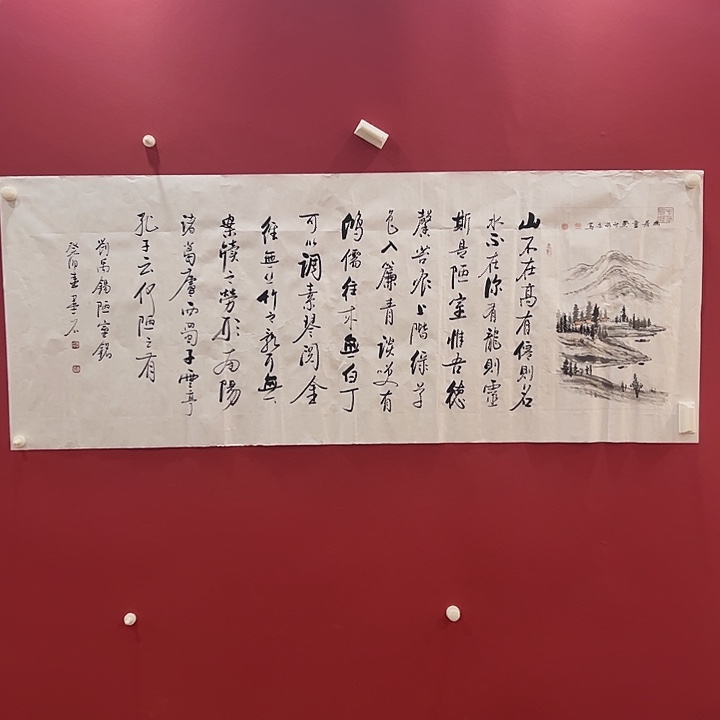 山不在高有僊則名
水不在深有龍則靈
斯是陋室惟吾德
馨苔痕上階綠草
色入簾青談笑有
鴻儒往來無白丁
可以調素琴閱金
經無絲竹之亂耳無
案牘之勞形南陽
諸葛廬西蜀子雲亭
孔子云何陋之有
劉禹錫陋室銘
癸卯